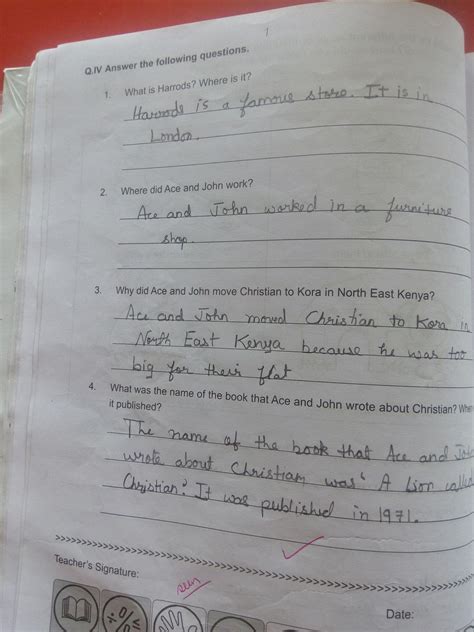 1
Q.IV Answer the following questions.
1. What is Harrods? Where is it?
Harrods is a famous store. It is in
London.
2. Where did Ace and John work?
Ace and John worked in a furniture
shop.
3. Why did Ace and John move Christian to Kora in North East Kenya?
Ace and John moved Christian to Kora in
North East Kenya because he was too
big for their flat
4. What was the name of the book that Ace and John wrote about Christian? When
it published?
The name of the book that Ace and John
wrote about Christian was 'A Lion called
Christian'. It was published in 1971.
Teacher's Signature:
seen
Date: